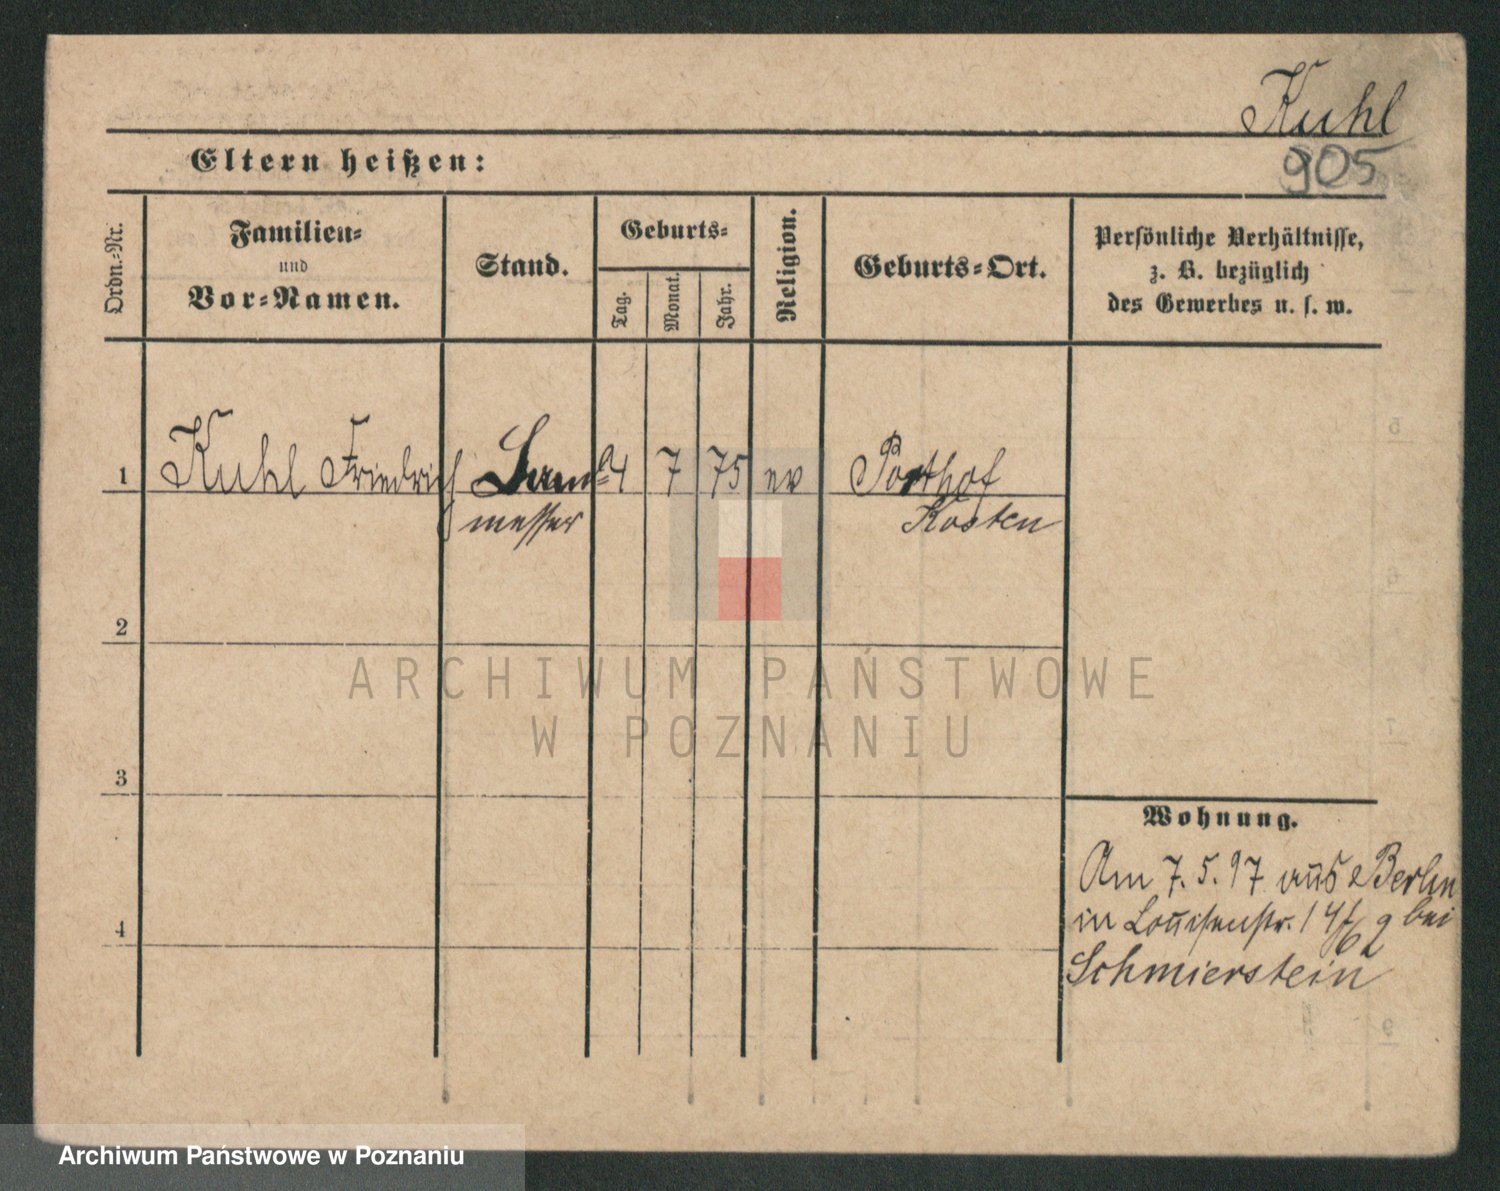 Kuhl
905
Eltern heißen:
Ordn.-Nr.
Familien-
und
Vor-Namen.
Stand.
Geburts-
Tag.
Monat.
Jahr.
Religion.
Geburts-Ort.
Persönliche Verhältnisse,
z. B. bezüglich
des Gewerbes u. s. w.
1 Kuhl Friedrich Land= 4 7 75 ev Posthof
messer Kosten
2
ARCHIWUM PAŃSTWOWE
W POZNANIU
3
Wohnung.
Am 7. 5. 97 aus Berlin
in Louisenstr. bei
4
Schmierstein
Archiwum Państwowe w Poznaniu